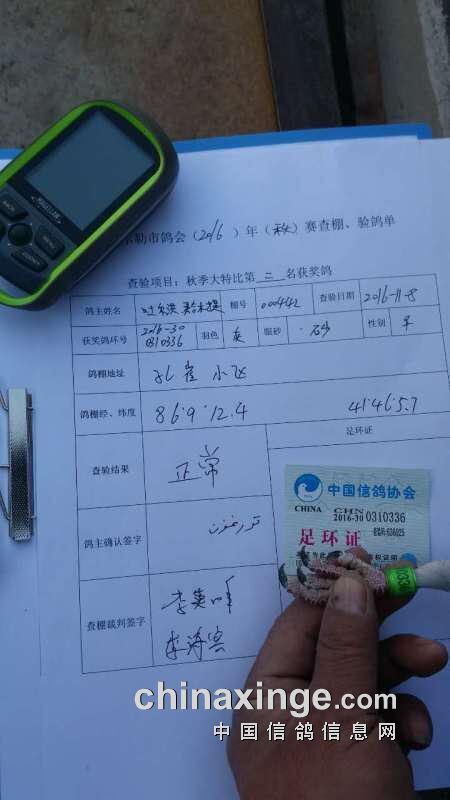 MAGELLAN
BACK
MENU
尔勒市鸽会（2016）年（秋）赛查棚、验鸽单
查验项目：秋季大特比第 三 名获奖鸽
鸽主姓名
棚号 000442 查验日期 2016-11-8
获奖鸽环号 2016-30
0310336
羽色 灰 眼砂 砂 性别
鸽棚地址 孔雀小区
鸽棚经、纬度 86.9.12.4 41.46.5.7
查验结果 正常
足环证
中国信鸽协会
CHINA CHN
2016-30 0310336
足环证
鸽主确认签字
查棚裁判签字 李英
chinaxinge.com
中国信鸽信息网